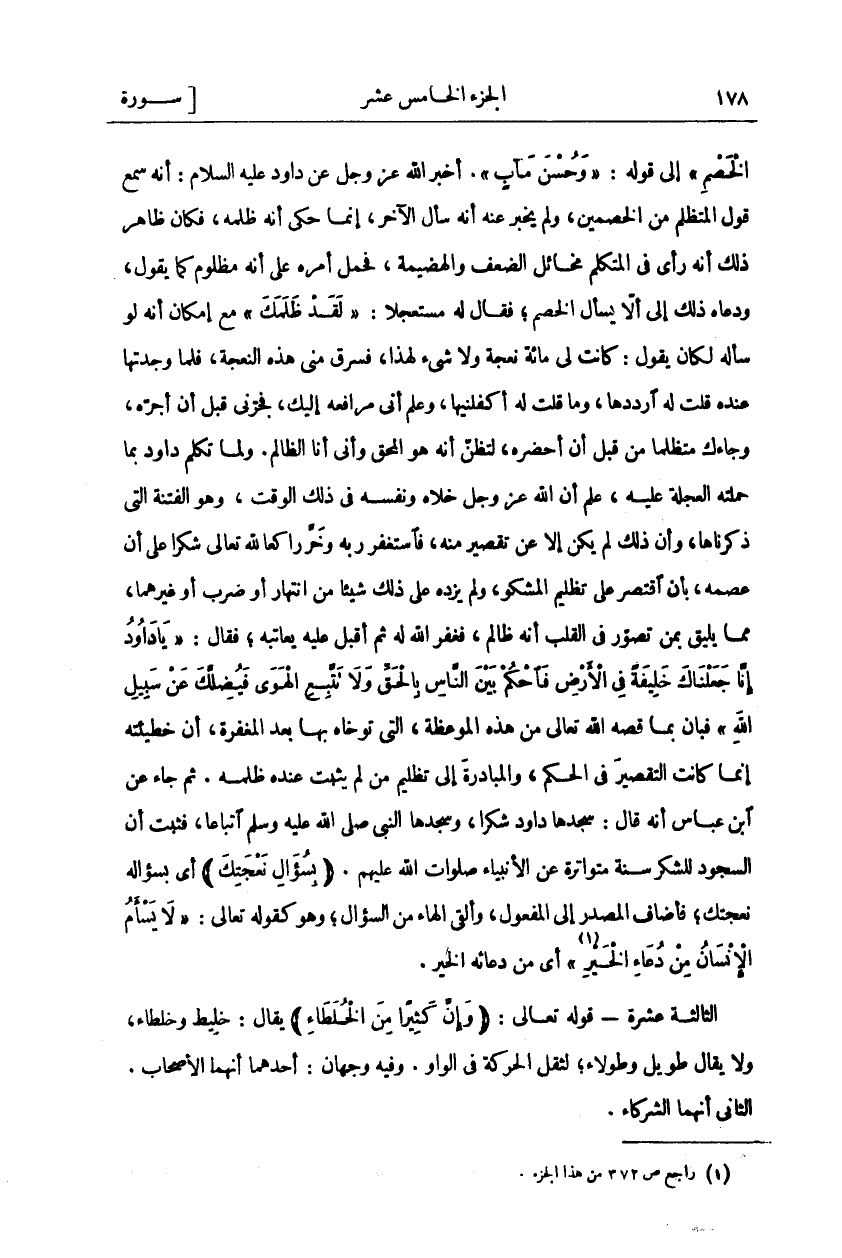 ١٧٨ الجزء الخامس عشر [ ســورة
الْخَصْمِ » إلى قوله : « وَحُسْنَ مَآبٍ » . أخبر الله عز وجل عن داود عليه السلام : أنه سمع
قول المتظلم من الخصمين، ولم يخبر عنه أنه سأل الآخر، إنمــا حكى أنه ظلمه ، فكان ظاهر
ذلك أنه رأى فى المتكلم مخائل الضعف والهضيمة ، فحمل أمره على أنه مظلوم كما يقول،
ودعاه ذلك إلى ألّا يسأل الخصم ؛ فقــال له مستعجلا : « لَقَــدْ ظَلَمَكَ » مع إمكان أنه لو
سأله لكان يقول : كانت لى مائة نعجة ولا شىء لهذا، فسرق منى هذه النعجة، فلما وجدتها
عنده قلت له آرددها ، وما قلت له أكفلنيها، وعلم أنى مرافعه إليك، فجرّنى قبل أن أجرّه،
وجاءك متظلما من قبل أن أحضره، لتظنّ أنه هو المحق وأنى أنا الظالم. ولمــا تكلم داود بما
حملته العجلة عليــه ، علم أن الله عز وجل خلاه ونفســه فى ذلك الوقت ، وهو الفتنة التى
ذكرناها، وأن ذلك لم يكن إلا عن تقصير منه، فآستغفر ربه وخَرَّ راكعا لله تعالى شكرا على أن
عصمه ، بأن آقتصر على تظليم المشكو، ولم يزده على ذلك شيئا من انتهار أو ضرب أو غيرهما،
ممــا يليق بمن تصوّر فى القلب أنه ظالم ، فغفر الله له ثم أقبل عليه يعاتبه ؛ فقال : « يَادَاوُدُ
إِنَّا جَعَلْنَاكَ خَلِيفَةً فِى الْأَرْضِ فَآحْكُمْ بَيْنَ النَّاسِ بِالْحَقِّ وَلَا تَتَّبِــعِ الْهَوَى فَيُضِلَّكَ عَنْ سَبِيلِ
اللهِ » فبان بمــا قصه الله تعالى من هذه الموعظة ، التى توخاه بهــا بعد المغفرة ، أن خطيئته
إنمــا كانت التقصيرَ فى الحكم ، والمبادرةَ إلى تظليم من لم يثبت عنده ظلمــه . ثم جاء عن
آبن عبــاس أنه قال : سجدها داود شكرا، وسجدها النبى صلى الله عليه وسلم آتباعا، فثبت أن
السجود للشكر ســنة متواترة عن الأنبياء صلوات الله عليهم . ﴿ بِسُؤَالِ نَعْجَتِكَ ﴾ أى بسؤاله
نعجتك؛ فأضاف المصدر إلى المفعول، وألقى الهاء من السؤال؛ وهو كقوله تعالى : « لَا يَسْأَمُ
الْإِنْسَانُ مِنْ دُعَاءِ الْخَــيْرِ(١) » أى من دعائه الخير .
الثالثــة عشرة — قوله تعــالى : ﴿ وَإِنَّ كَثِيرًا مِنَ الْخُلَطَاءِ ﴾ يقال : خليط وخلطاء،
ولا يقال طويل وطولاء؛ لثقل الحركة فى الواو . وفيه وجهان : أحدهما أنهما الأصحاب .
الثانى أنهما الشركاء .
(١) راجع ص ٣٧٢ من هذا الجزء .